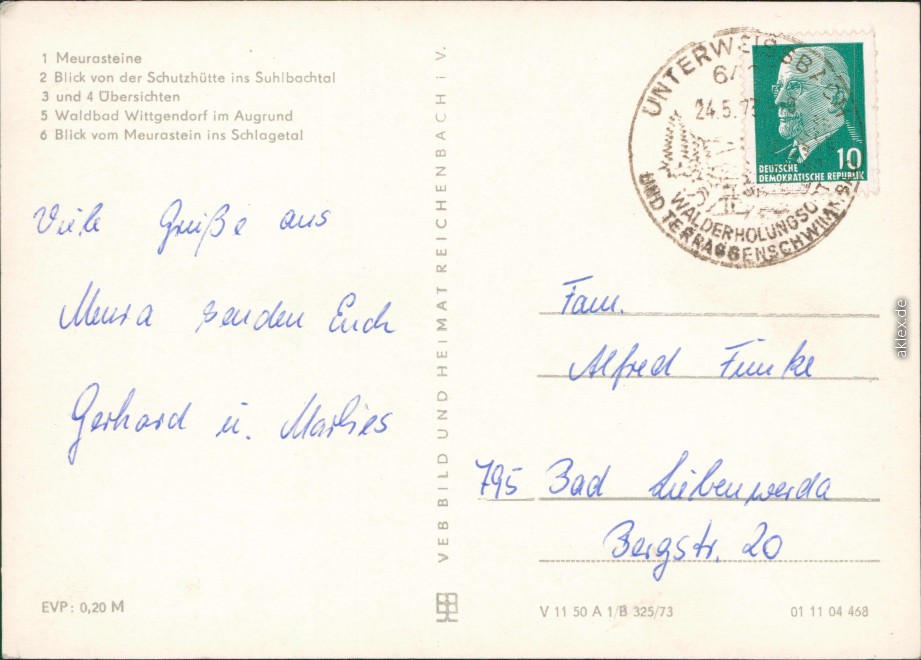 1 Meurasteine
2 Blick von der Schutzhütte ins Suhlbachtal
3 und 4 Übersichten
5 Waldbad Wittgendorf im Augrund
6 Blick vom Meurastein ins Schlagetal
Viele Grüße aus
Meura senden Euch
Gerhard u. Marlies
EVP: 0,20 M
VEB BILD UND HEIMAT REICHENBACH i V.
UNTERWEISSBACH
24.5.73
WALDERHOLUNGSORT
UND TERRASSENSCHWIMM
10
DEUTSCHE
DEMOKRATISCHE REPUBLIK
Fam.
Alfred Funke
795 Bad Liebenwerda
Bergstr. 20
V 11 50 A 1/B 325/73
01 11 04 468
aklex.de